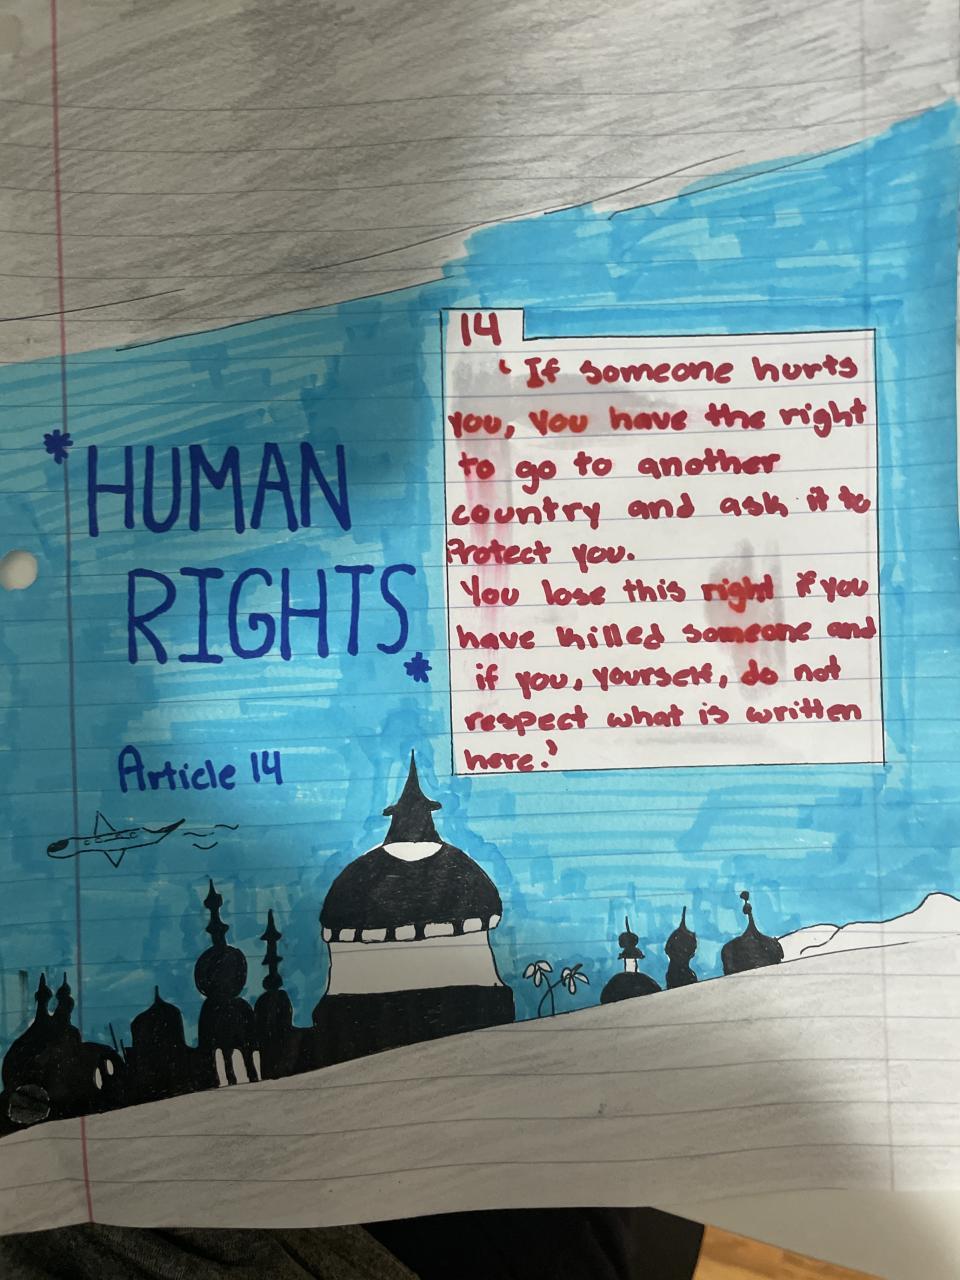 *HUMAN
RIGHTS*
Article 14
14
' If someone hurts
you, you have the right
to go to another
country and ask it to
Protect you.
You lose this right if you
have killed someone and
if you, yourself, do not
respect what is written
here.'